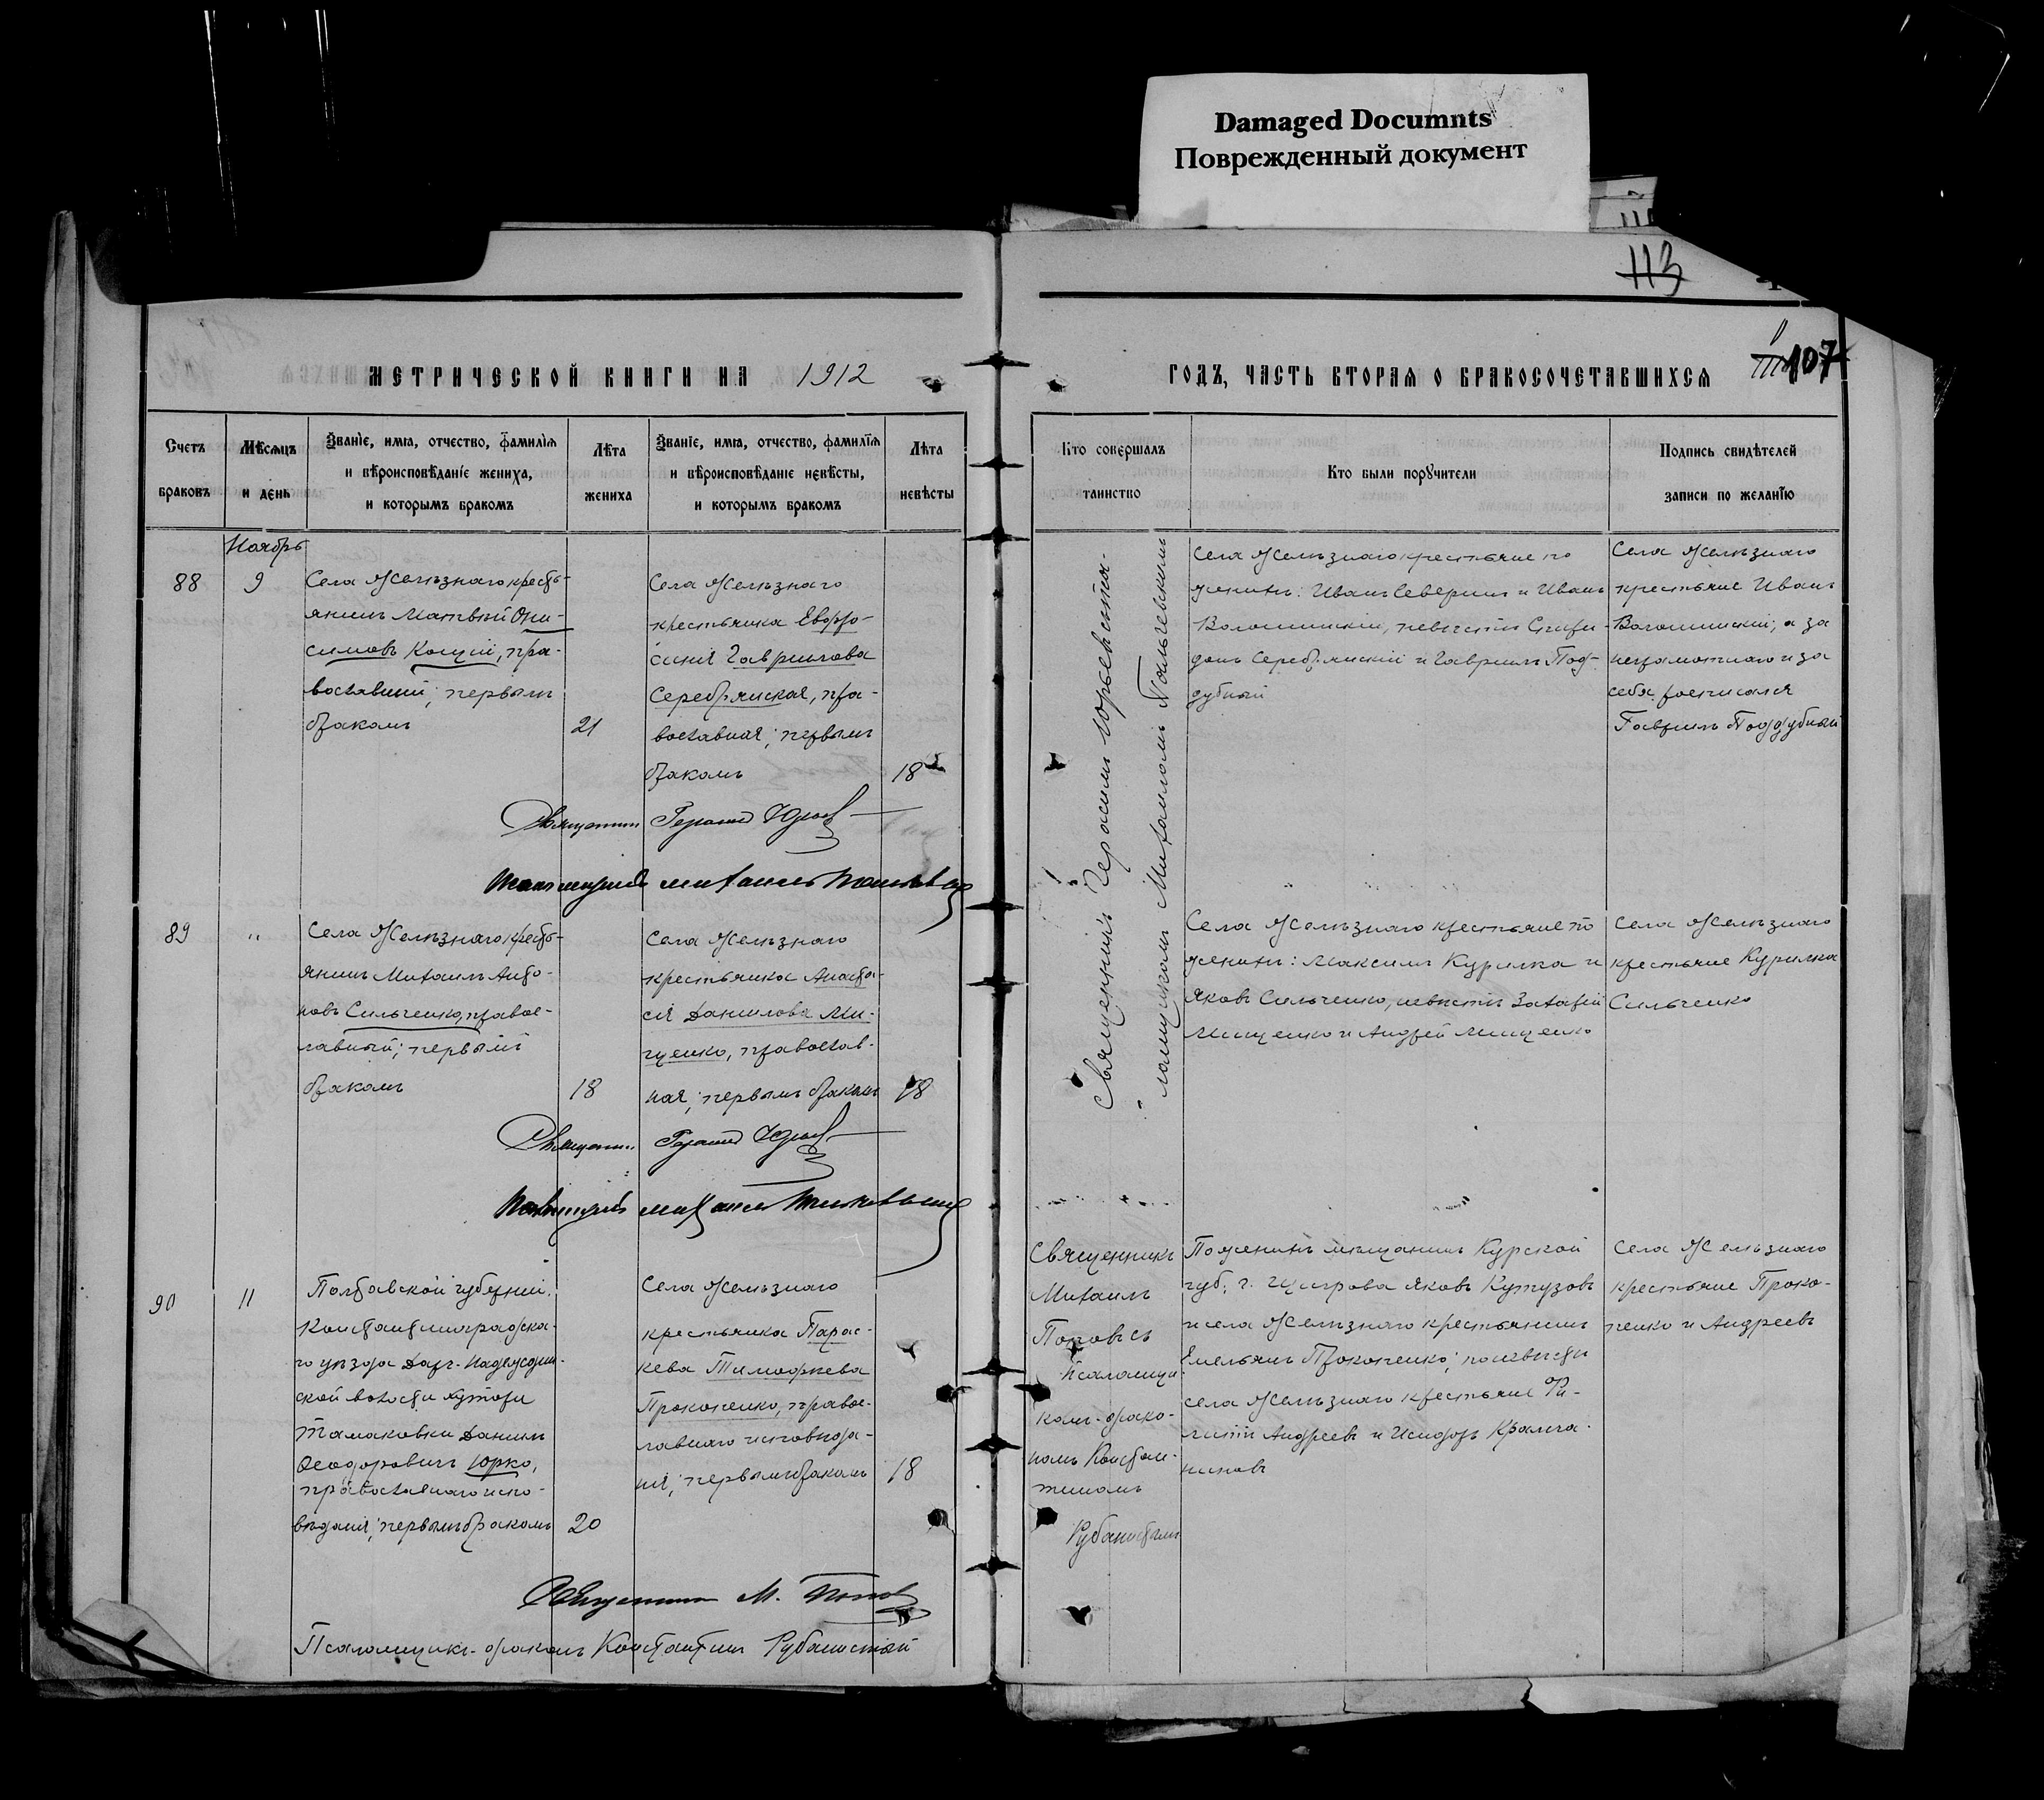 Damaged Documnts
Поврежденный документ
113
107
МЕТРИЧЕСКОЙ КНИГИ НА 1912
ГОДЪ, ЧАСТЬ ВТОРАЯ О БРАКОСОЧЕТАВШИХСЯ
Счетъ
браковъ
Мѣсяцъ
и день
Званіе, имя, отчество, фамилія
и вѣроисповѣданіе жениха,
и которымъ бракомъ
Лѣта
жениха
Званіе, имя, отчество, фамилія
и вѣроисповѣданіе невѣсты,
и которымъ бракомъ
Лѣта
невѣсты
Кто совершалъ
таинство
Кто были поручители
Подпись свидѣтелей
записи по желанію
Ноябрь
88
9
Села Желѣзнаго кресть-
янинъ Матвѣй Они-
симовъ Кощій, пра-
вославный; первымъ
бракомъ
21
Села Желѣзнаго
крестьянка Евфро-
синія Гавриилова
Серебрянская, пра-
вославная; первымъ
бракомъ
18
Священникъ Герасимъ Юрьев
Псаломщикъ Михаилъ
Священникъ Герасимъ Юрьевъ съ пса-
ломщикомъ Михаиломъ Пальчевскимъ
Села Желѣзнаго крестьяне по
женихѣ: Иванъ Северинъ и Иванъ
Волошинскій, невѣстѣ Спири-
донъ Серебрянскій и Гавриилъ Под-
дубный
Села Желѣзнаго
крестьяне Иванъ
Волошинскій; а за
неграмотнаго и за
себя росписался
Гавриилъ Поддубный
89
"
Села Желѣзнаго кресть-
янинъ Михаилъ Анто-
новъ Сильченко, правос-
лавный; первымъ
бракомъ
18
Села Желѣзнаго
крестьянка Анаста-
сія Данилова Ми-
щенко, православ-
ная; первымъ бракомъ
18
Священникъ Герасимъ Юрьев
Псаломщикъ Михаилъ
Села Желѣзнаго крестьяне по
женихѣ: Максимъ Курилка и
Яковъ Сильченко, невѣстѣ Захарій
Мищенко и Андрей Мищенко
Села Желѣзнаго
крестьяне Курилка
Сильченко
90
11
Полтавской губерніи,
Константиноградска-
го уѣзда Дар-Надеждин-
ской волости хутора
Тамаковки Даніилъ
Ѳеодоровичъ Юрко,
православнаго испо-
вѣданія; первымъ бракомъ
20
Села Желѣзнаго
крестьянка Парас-
кева Тимофеева
Прокопенко, правос-
лавнаго исповѣда-
нія; первымъ бракомъ
18
Священникъ
Михаилъ
Поповъ съ
псаломщи-
комъ-діако-
номъ Констан-
тиномъ
Рубанистымъ
По женихѣ мѣщанинъ Курской
губ. г. Щигрова Яковъ Кутузовъ
и села Желѣзнаго крестьянинъ
Емельянъ Прокопенко; по невѣстѣ
села Желѣзнаго крестьяне Фи-
липпъ Андреевъ и Исидоръ
Села Желѣзнаго
крестьяне Проко-
пенко и Андреевъ
Священникъ М. Попов
Псаломщикъ-діаконъ Константинъ Рубанистый